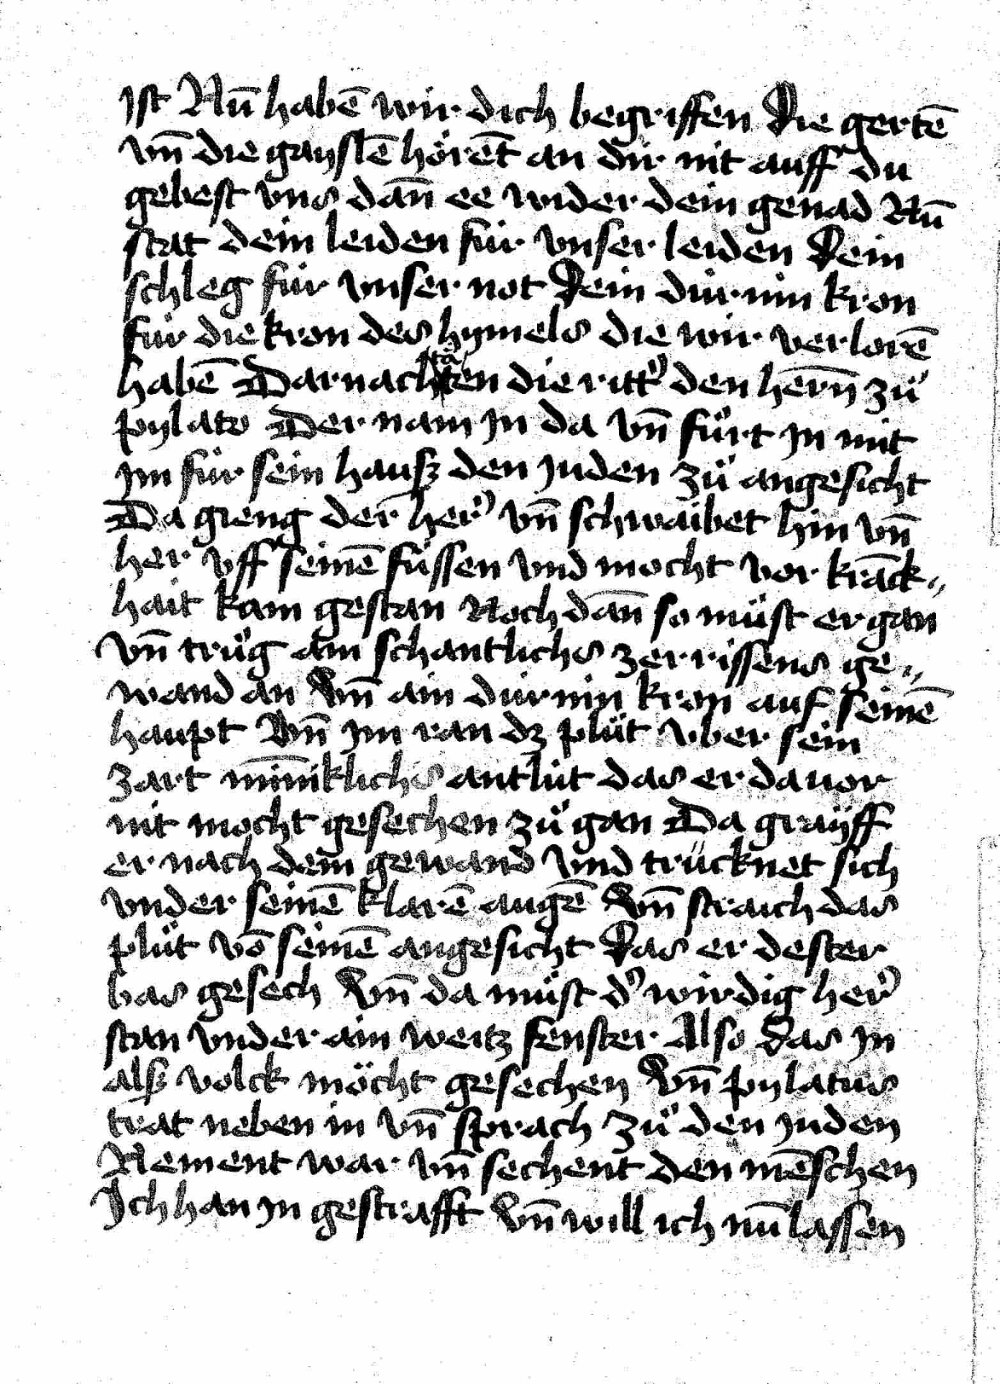 ist Nũ habẽ wir dich begriffen Die gertẽ
vñ die gayslẽ hörẽt an dir nit auff du
gebest vns dañ ee wider dein genad Nũ
stat dein leiden für vnser leiden Dein
schleg für vnser not Dein dürnin kron
für die kron des hymels die wir verlorẽ
habẽ Darnach die ritt' den herñ zů
pylato Der nam jn da vñ fůrt jn mit
jm für sein hausz den juden zů angesicht
Da gieng der her' vñ schwaibet hin vñ
her vff seinẽ füssen vnd mocht vor krãck„
hait kam gestan Noch dañ so můst er gan
vñ trůg ain schantlichs zerrissens ge„
wand an Vñ ain dürnin kron auf seinẽ
haupt Vñ jm ran dz plůt vber sein
zart miñiklichs antlüt das er da vor
nit mocht gesechen zů gan Da grayff
er nach dem gewand vnd trücknet sich
vnder seinẽ klarẽ augẽ Vñ straich das
plůt võ seinẽ angesicht Das er dester
bas gesech Vñ da můst d' wirdig her'
stan vnder ain weitz fenster Also das jn
alsz volck möcht gesechen Vñ pylatus
trat neben in vñ sprach zů den juden
Nement war vñ sechent den mẽschen
Ich han jn gestrafft Vñ will ich nũ lassen